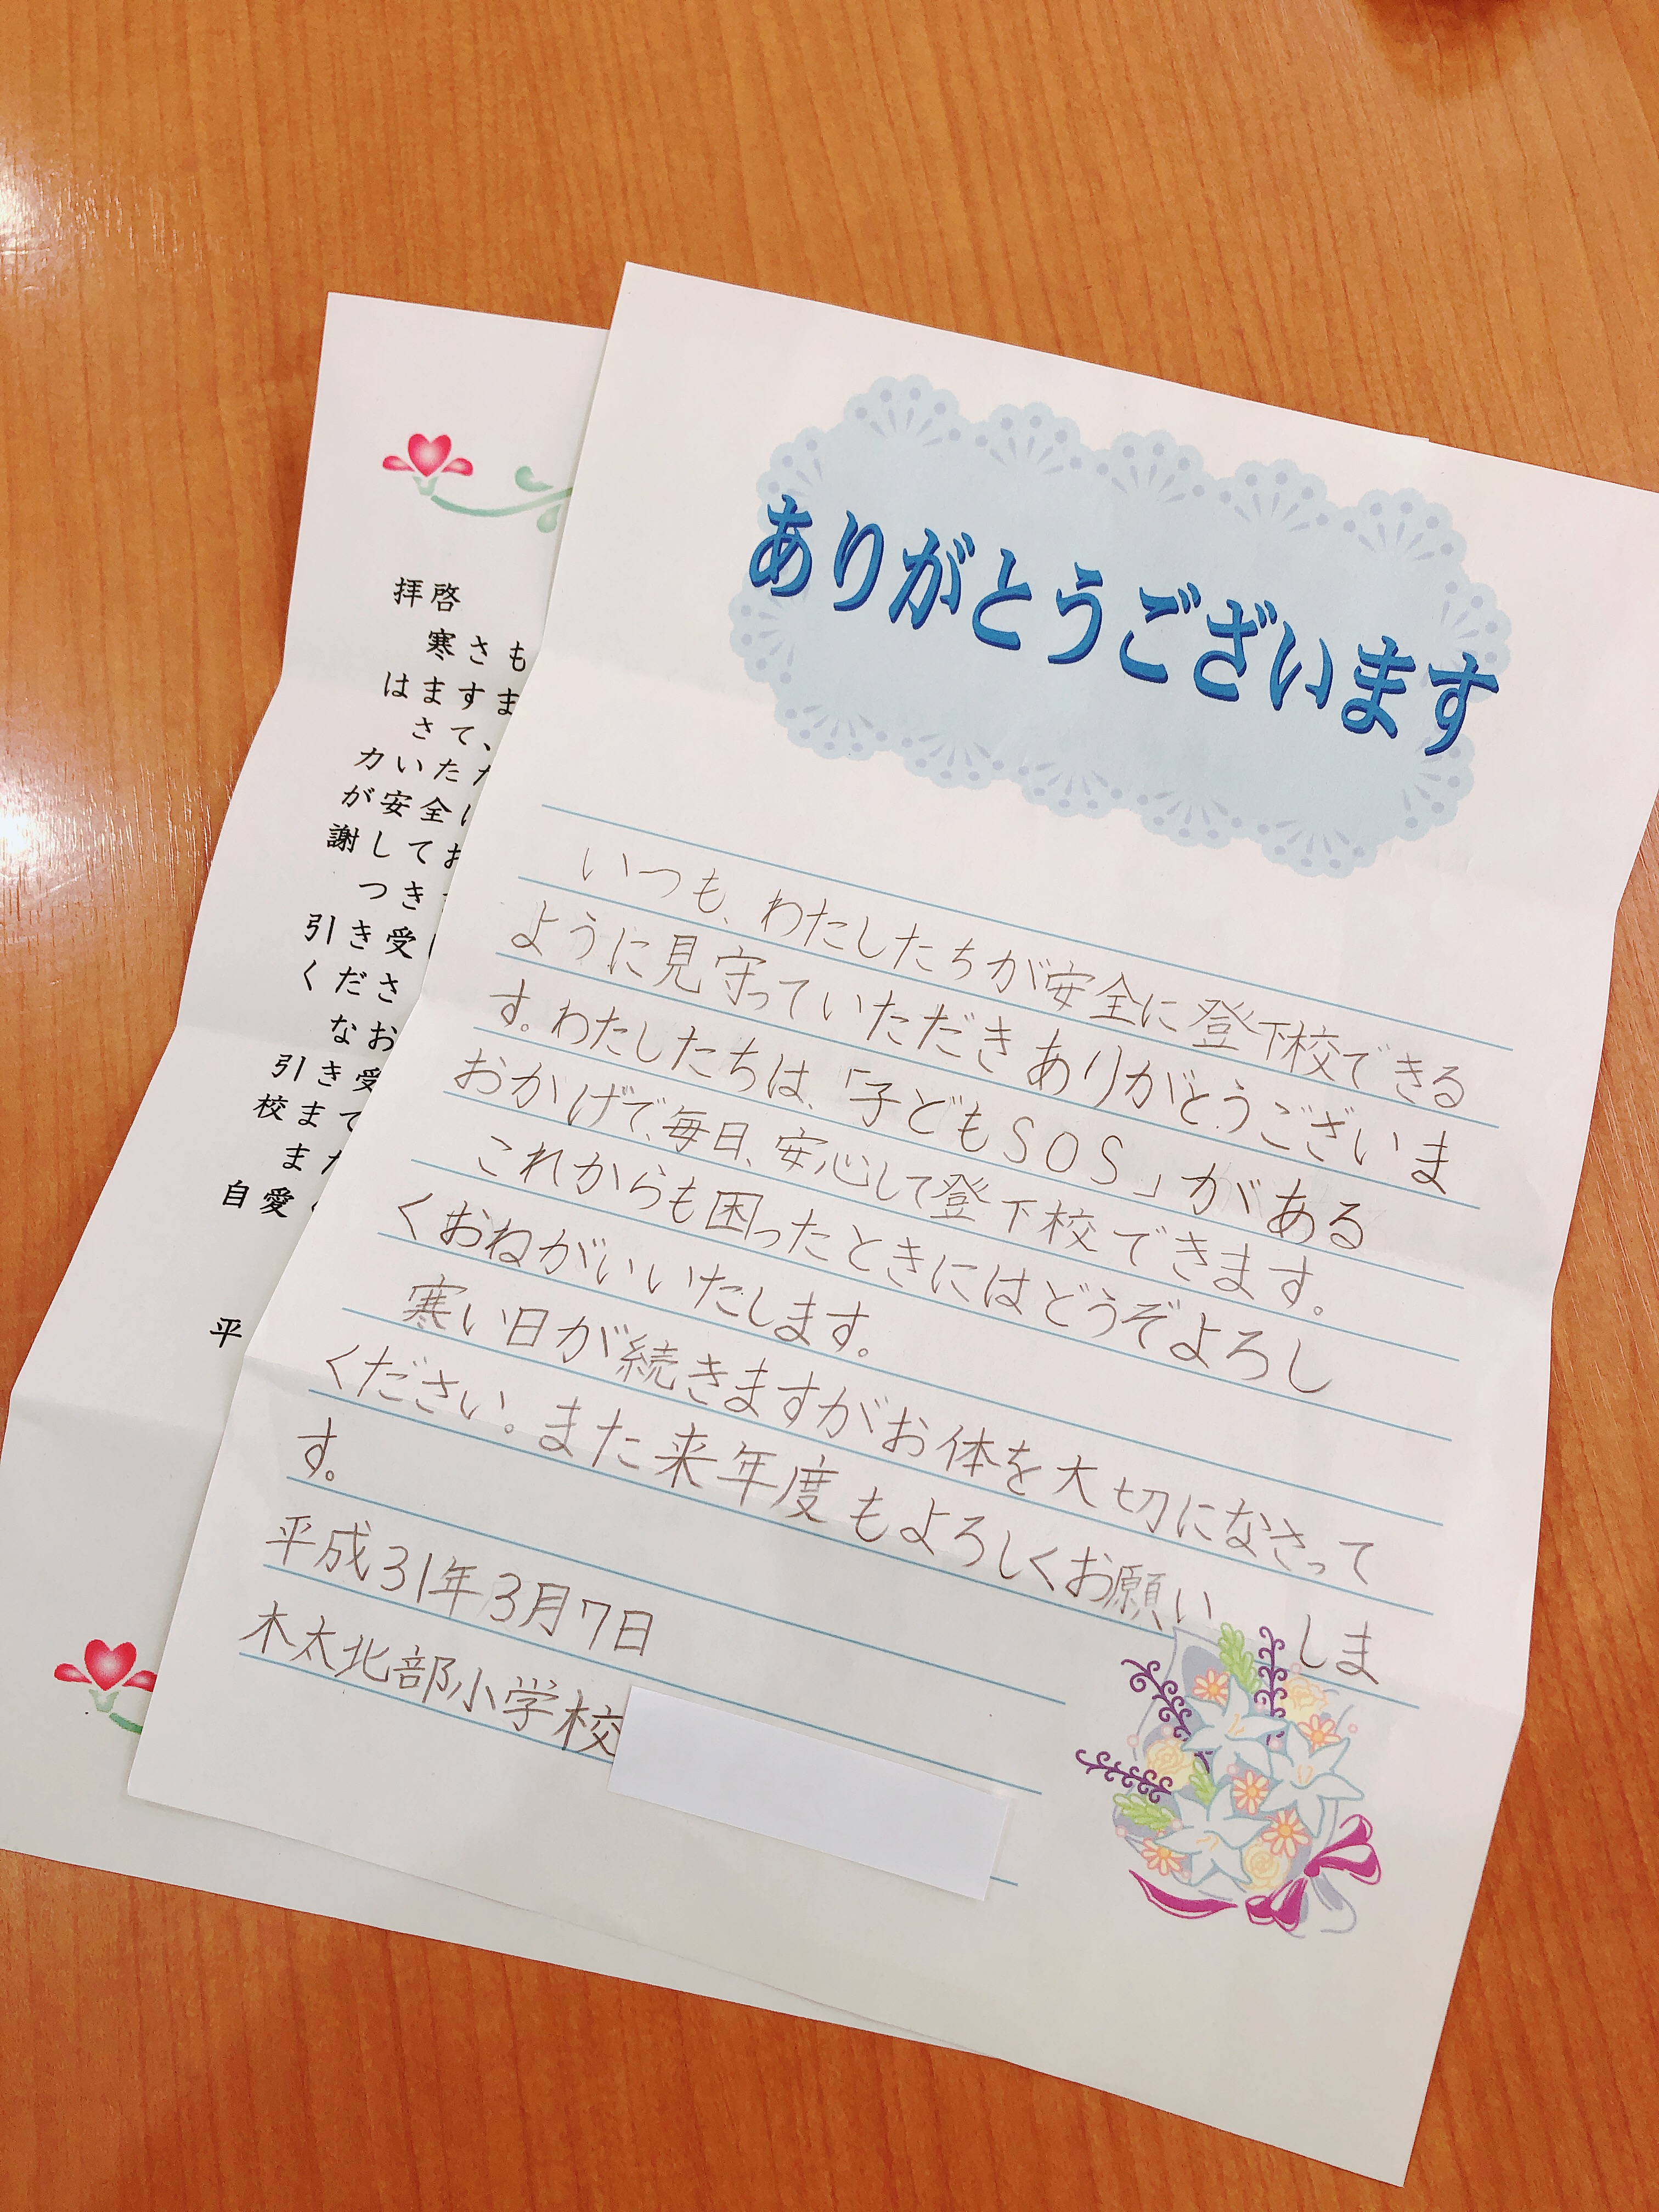 ありがとうございます
いつも、わたしたちが安全に登下校できる
ように見守っていただきありがとうございま
す。わたしたちは、「子どもSOS」がある
おかげで、毎日、安心して登下校できます。
これからも困ったときにはどうぞよろし
くおねがいいたします。
寒い日が続きますがお体を大切になさって
ください。また来年度もよろしくお願いしま
す。
平成31年3月7日
木太北部小学校
拝啓
寒さも
はますま
さて、
力いた
が安全
謝して
つき
引き受
くださ
なお
引き受
校まで
また
自愛
平